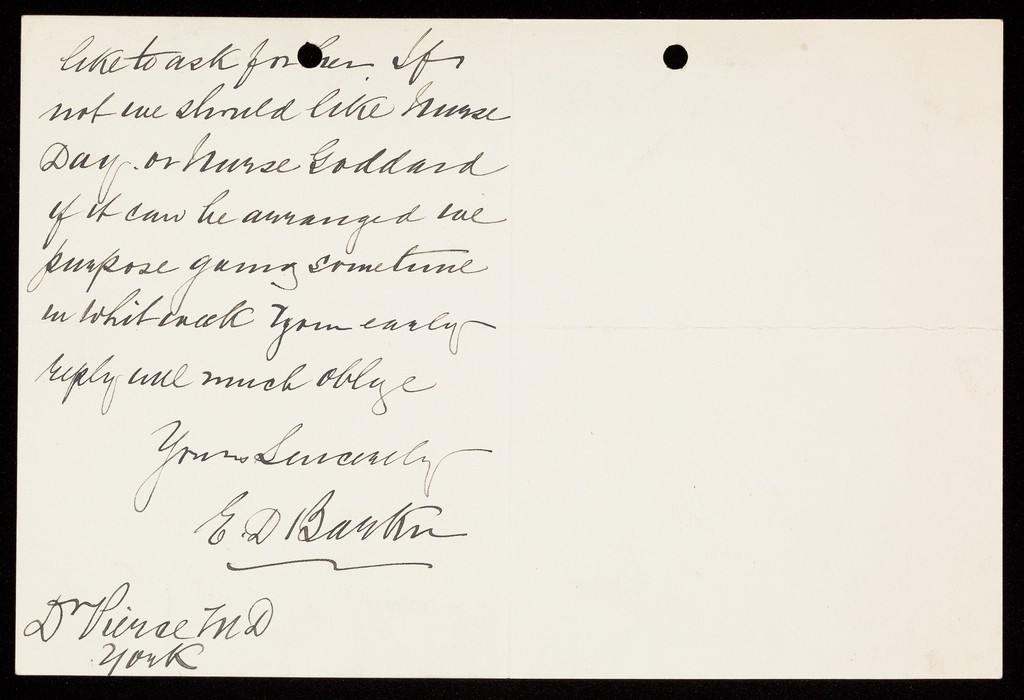 like to ask for her. If
not we should like Nurse
Day. or Nurse Goddard
if it can be arranged we
purpose going sometime
in Whit week Your early
reply will much oblige
Yours Sincerely
E. D Barker
Dr Pierce MD
York